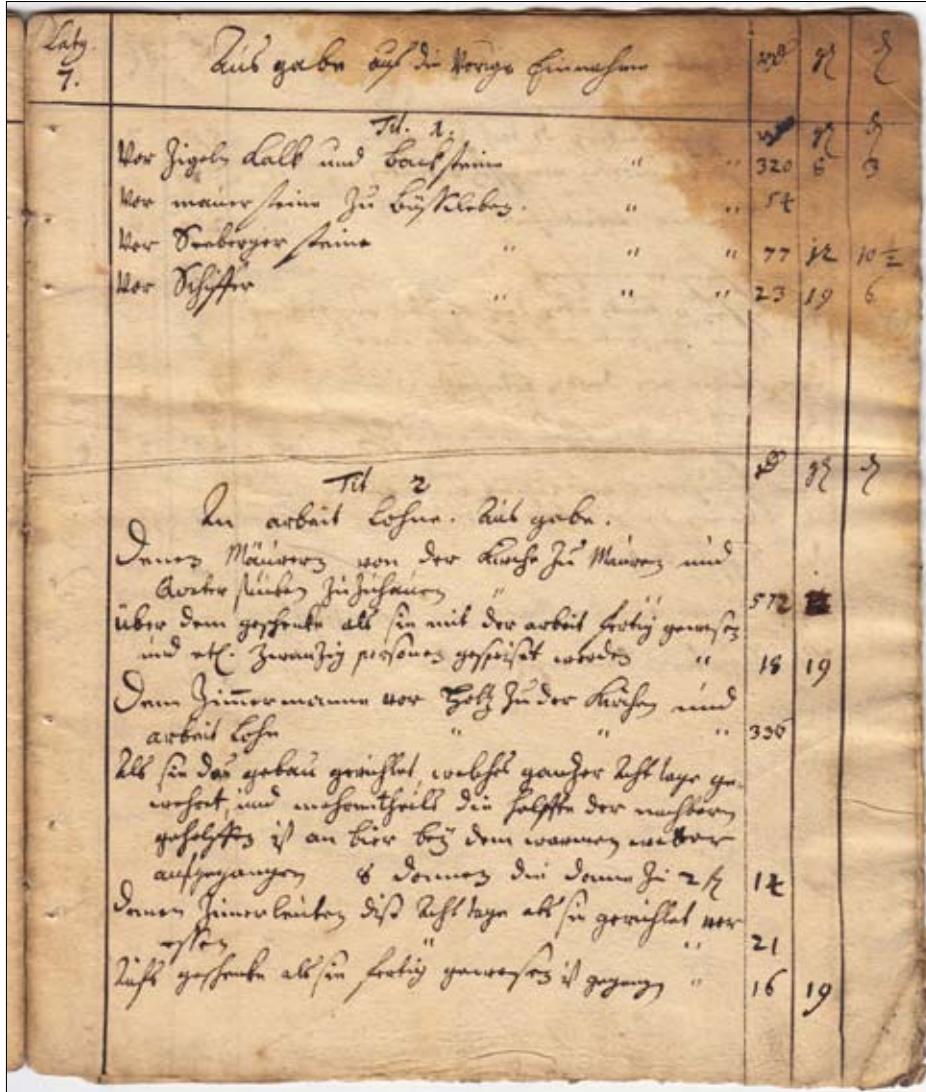 Latg. Aus gabe auf die vorige Einnahme
7.
Tit. 1.
Vor Zigeln Kalk und backsteine " " 320 8 3
Vor mauer steine zu Büssleben. " " 54
Vor Seeberger steine " " " 77 12 10 ½
Vor Schiffer " " " 23 19 6
Tit 2
An arbeit Lohne. Aus gabe.
Denen Mäurern von der Kirche zu Mauren und
stücken zuzuhauen " " 572
über dem geschenke als sie mit der arbeit fertig gewesen
und etl. zwanzig personen gespeiset worden " 18 19
Dem Zimmermanne vor Holtz zu der Kirchen und
arbeit Lohn " " " 336
Als sie das gebau gerichtet, welches gantzer Acht tage ge-
wehret, und mehrentheils die helffte der nachbarn
geholffen ist an bier bey dem warmen wetter
aufgegangen 8 Tonnen die Tonne zu 2 14
Denen Zimerleuten diese Acht tage als sie gerichtet vor
essen " " 21
Aufs geschenke als sie fertig gewesen ist gegangen " 16 19